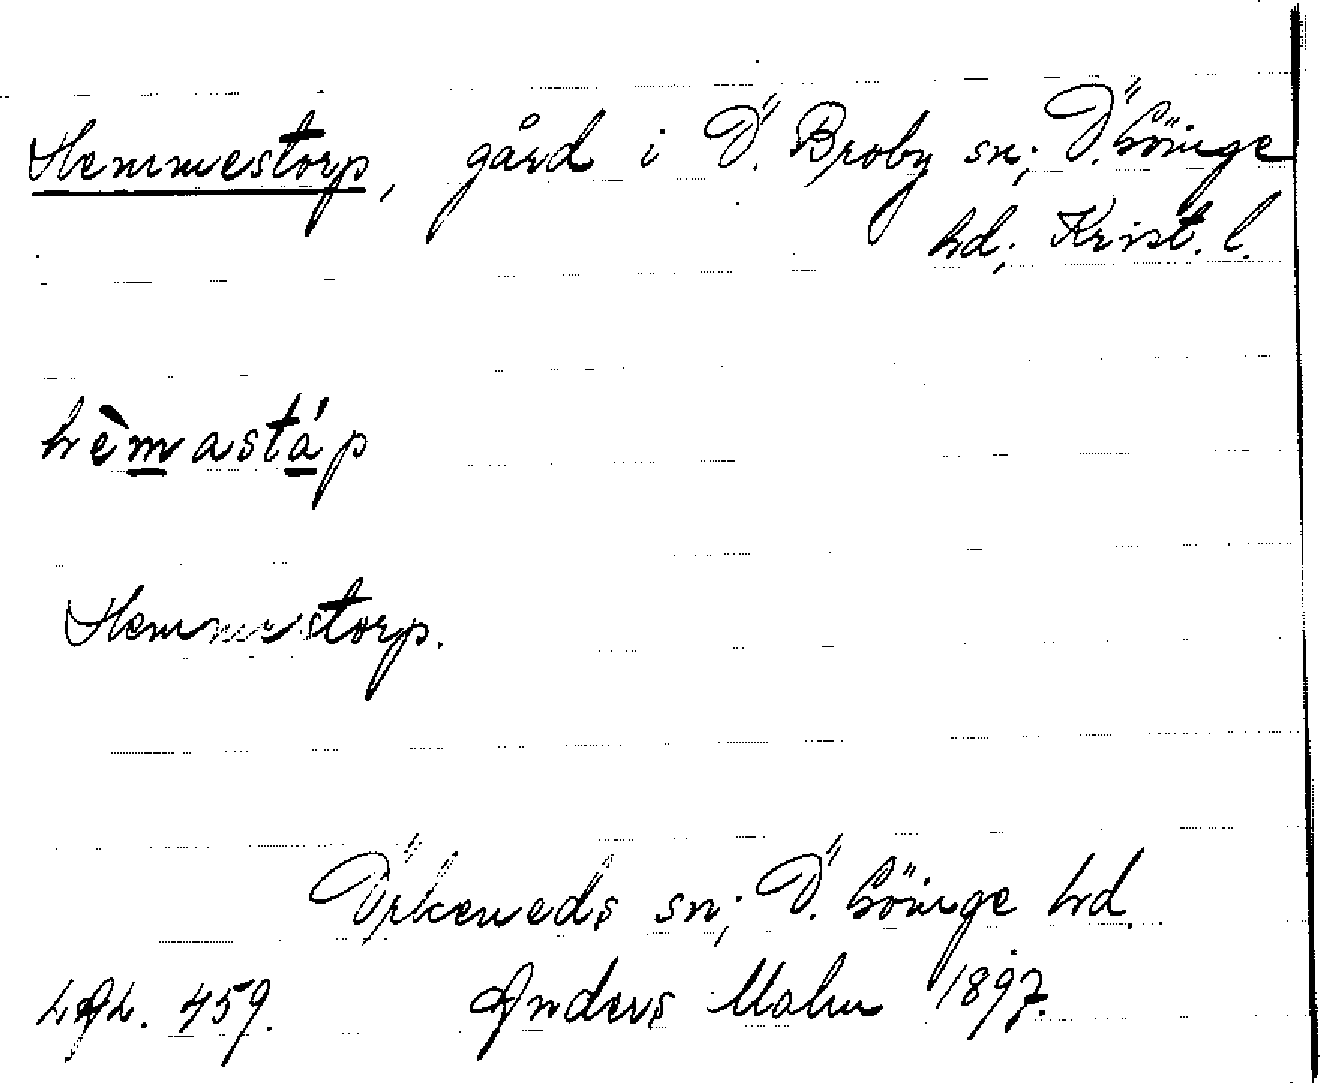 Hemmestorp, gård i Ö. Broby sn; Ö. Göinge
hd; Krist. l.
hèmastáp
Hemmestorp.
Örkeneds sn; Ö. Göinge hd.
459. Anders Malm 1897.